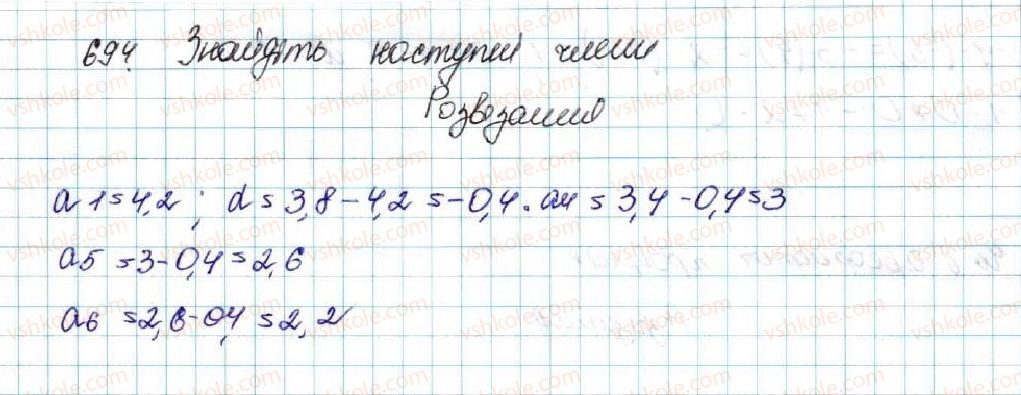 694. Знайдіть наступні члени
Розв'язання
a1 = 4,2; d = 3,8 - 4,2 = -0,4. a4 = 3,4 - 0,4 = 3
a5 = 3 - 0,4 = 2,6
a6 = 2,6 - 0,4 = 2,2